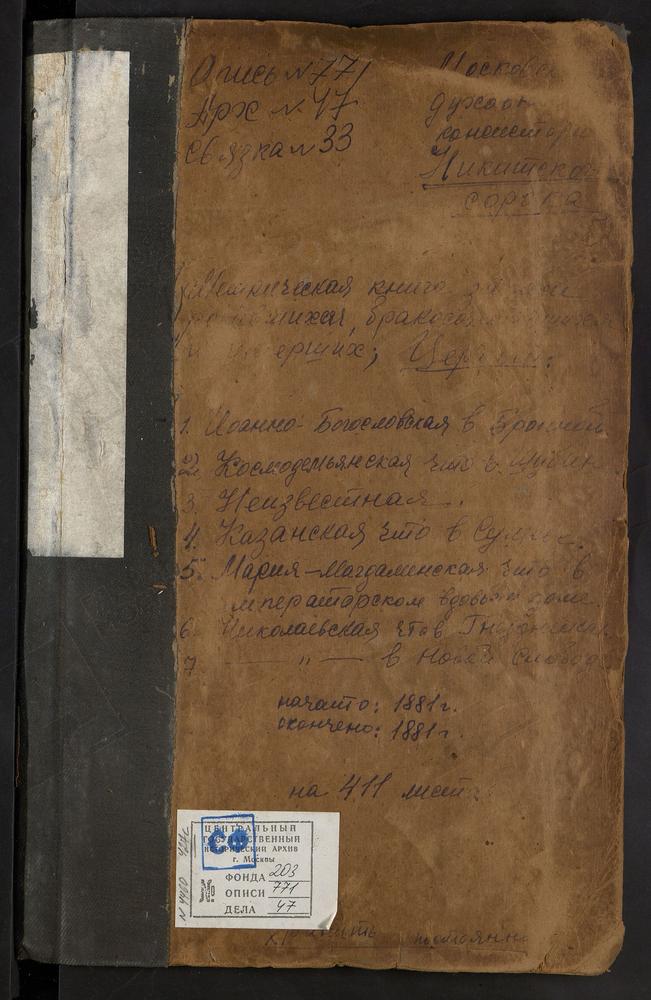 Опись N 771
Арх N. 47
Связка N 33
Московс
духовн
консистори
Никитского
сорока
Метрическая книга
бракосочетавшихся
и умерших; Церкви:
1. Иоанно-Богословская в Бронной
2. Космодемьянская что в Шубин
3. Неизвестная.
4. Казанская что в
5. Мария-Магдалинская что в
императорском вдовьем доме.
6. Николаевская что в Гнездниках
7. — " — в Новой Слобод
начато: 1881 г.
окончено: 1881 г.
на 411 листа
ЦЕНТРАЛЬНЫЙ
ГОСУДАРСТВЕННЫЙ
ИСТОРИЧЕСКИЙ АРХИВ
г. Москвы
СФ
№
ФОНДА 203
ОПИСИ 771
ДЕЛА 47
хранить постоянно